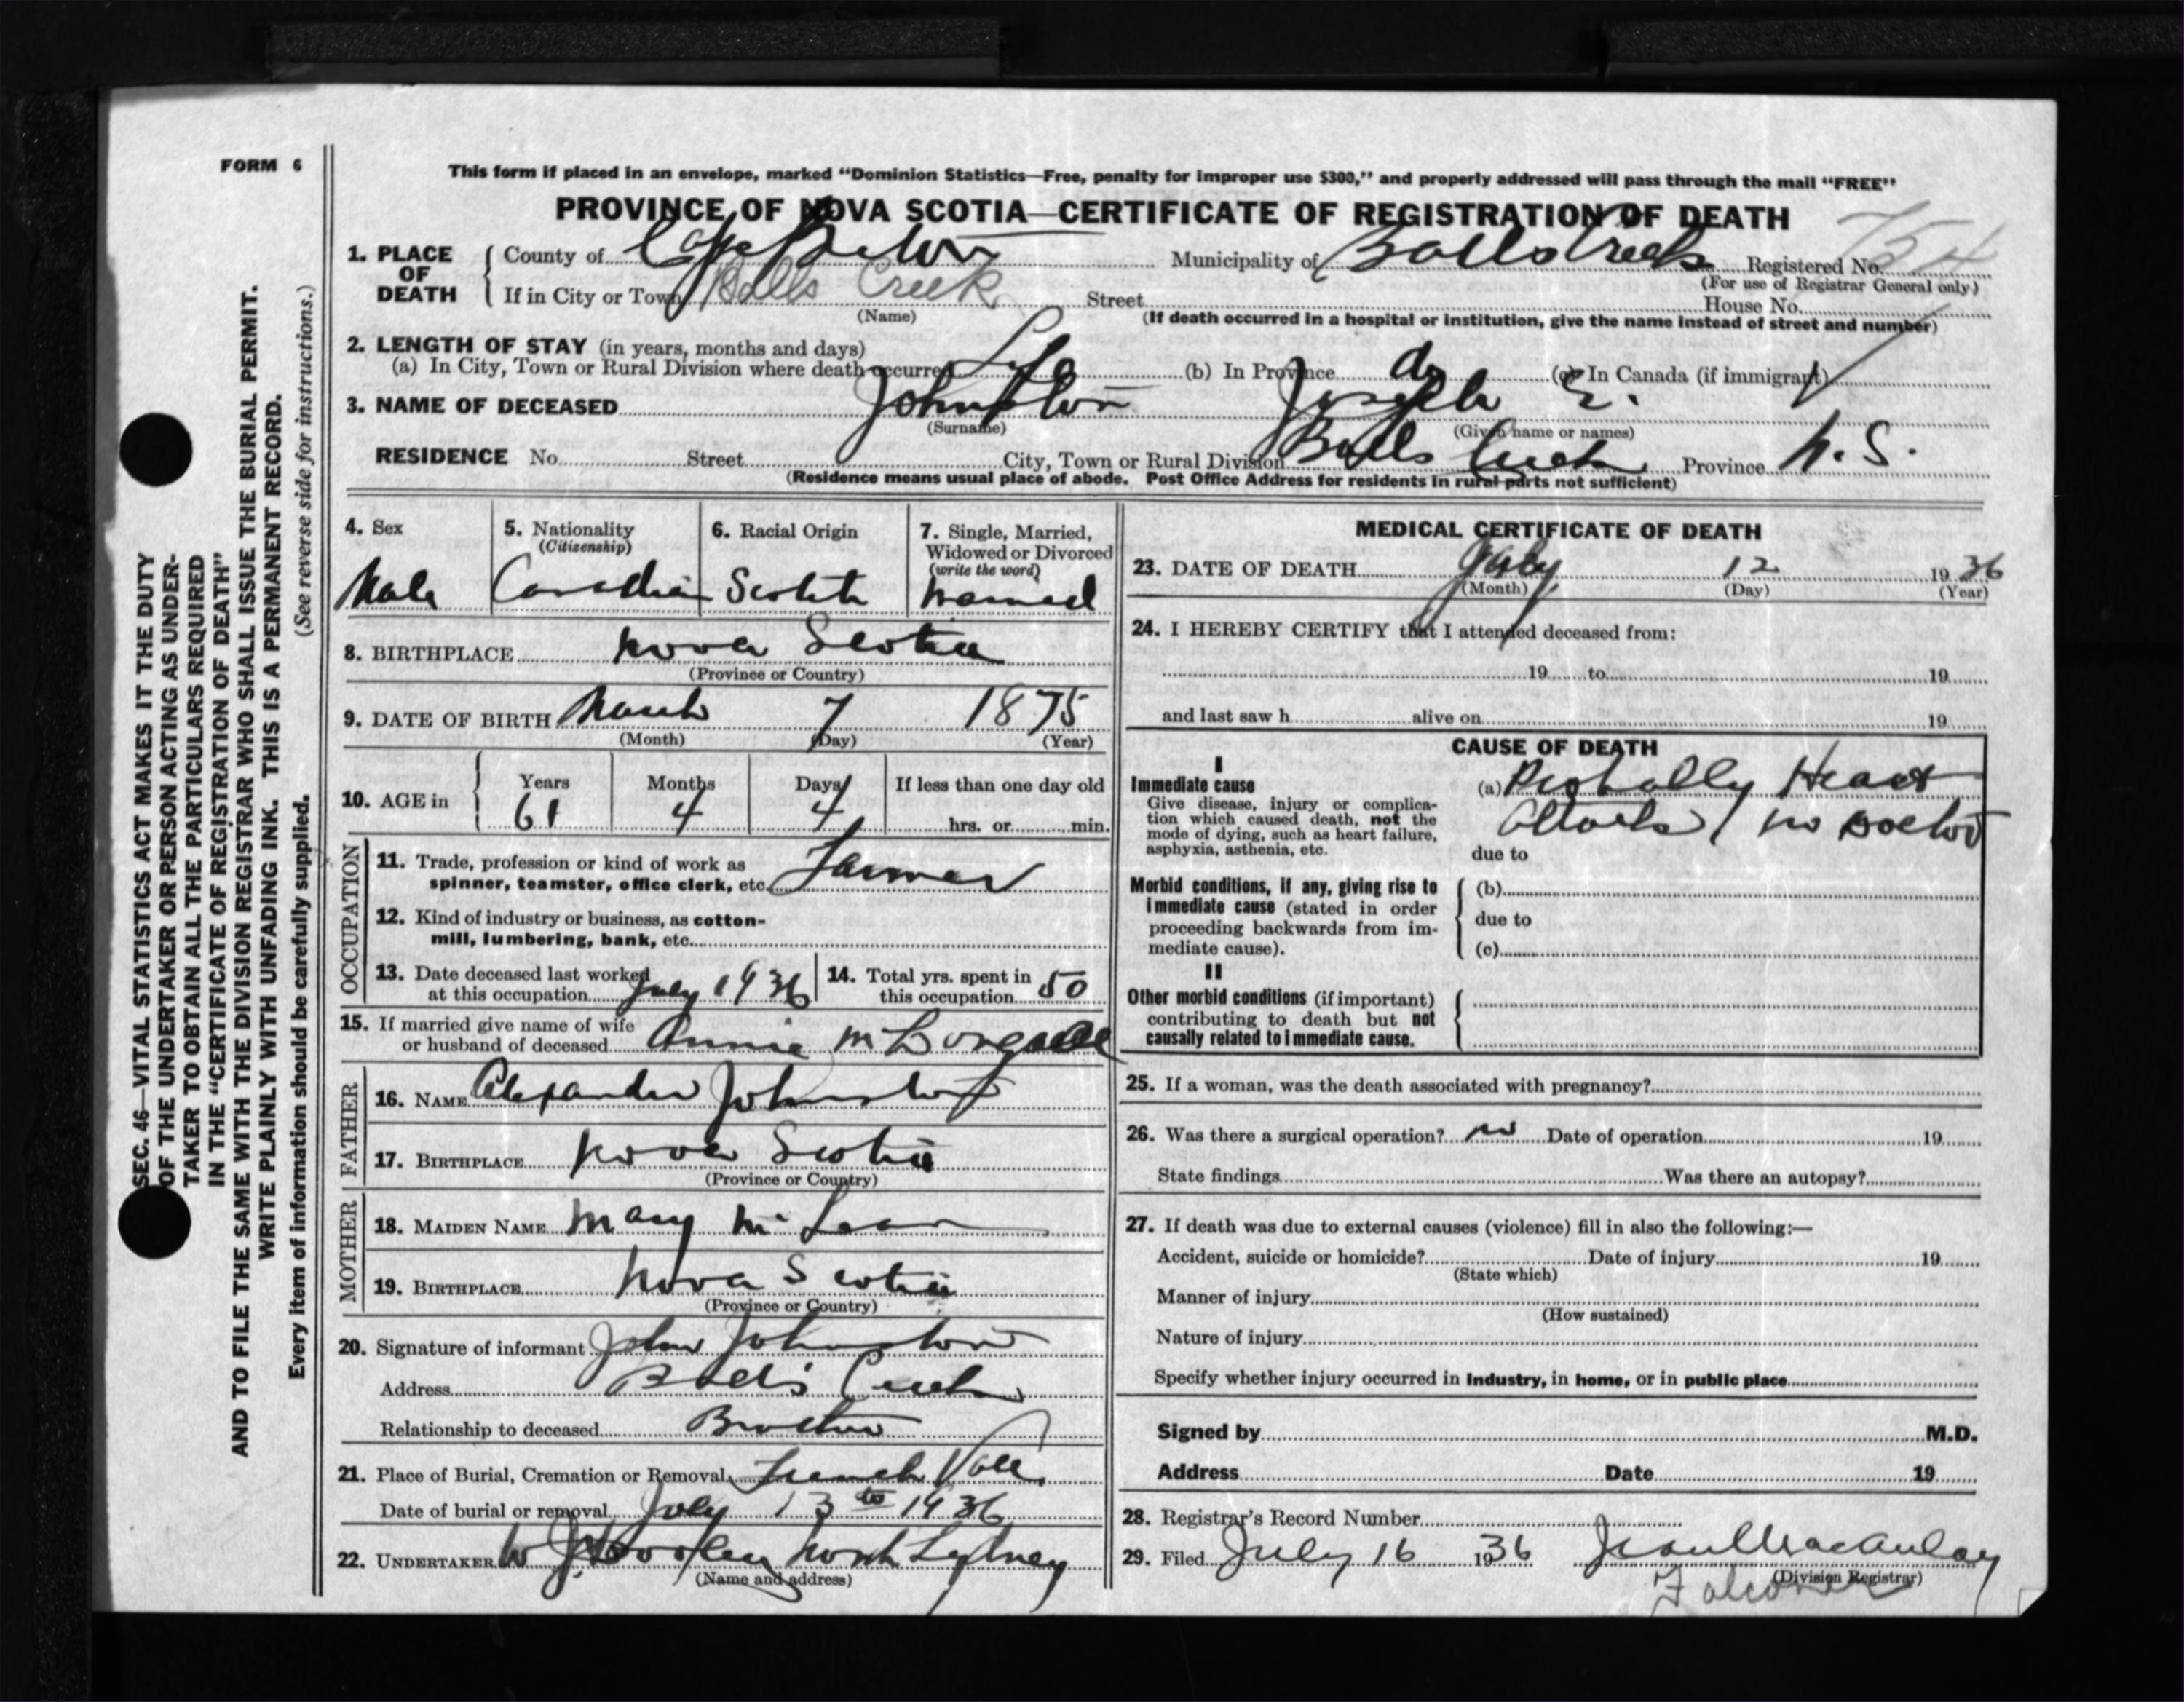 FORM 6
SEC. 46—VITAL STATISTICS ACT MAKES IT THE DUTY
OF THE UNDERTAKER OR PERSON ACTING AS UNDER-
TAKER TO OBTAIN ALL THE PARTICULARS REQUIRED
IN THE "CERTIFICATE OF REGISTRATION OF DEATH"
AND TO FILE THE SAME WITH THE DIVISION REGISTRAR WHO SHALL ISSUE THE BURIAL PERMIT.
WRITE PLAINLY WITH UNFADING INK. THIS IS A PERMANENT RECORD.
Every item of information should be carefully supplied. (See reverse side for instructions.)
This form if placed in an envelope, marked "Dominion Statistics—Free, penalty for improper use $300," and properly addressed will pass through the mail "FREE"
PROVINCE OF NOVA SCOTIA—CERTIFICATE OF REGISTRATION OF DEATH
1. PLACE OF DEATH County of Cape Breton Municipality of Balls Creek Registered No.
(For use of Registrar General only)
If in City or Town Balls Creek Street House No.
(Name) (If death occurred in a hospital or institution, give the name instead of street and number)
2. LENGTH OF STAY (in years, months and days)
(a) In City, Town or Rural Division where death occurred Life (b) In Province do (c) In Canada (if immigrant)
3. NAME OF DECEASED Johnston Joseph E.
(Surname) (Given name or names)
RESIDENCE No. Street City, Town or Rural Division Balls Creek Province N.S.
(Residence means usual place of abode. Post Office Address for residents in rural parts not sufficient)
4. Sex Male
5. Nationality (Citizenship) Canadian
6. Racial Origin Scotch
7. Single, Married, Widowed or Divorced (write the word) Married
8. BIRTHPLACE Nova Scotia
(Province or Country)
9. DATE OF BIRTH March 7 1875
(Month) (Day) (Year)
10. AGE in Years Months Days If less than one day old
61 4 4 hrs. or min.
OCCUPATION
11. Trade, profession or kind of work as
spinner, teamster, office clerk, etc. Farmer
12. Kind of industry or business, as cotton-
mill, lumbering, bank, etc.
13. Date deceased last worked at this occupation July 1936
14. Total yrs. spent in this occupation 50
15. If married give name of wife
or husband of deceased Annie
FATHER
16. NAME Alexander Johnston
17. BIRTHPLACE Nova Scotia
(Province or Country)
MOTHER
18. MAIDEN NAME Mary McLean
19. BIRTHPLACE Nova Scotia
(Province or Country)
20. Signature of informant John Johnston
Address Balls Creek
Relationship to deceased Brother
21. Place of Burial, Cremation or Removal French Vale
Date of burial or removal July 13th 1936
22. UNDERTAKER W J Dooley North Sydney
(Name and address)
MEDICAL CERTIFICATE OF DEATH
23. DATE OF DEATH July 12 1936
(Month) (Day) (Year)
24. I HEREBY CERTIFY that I attended deceased from:
19 to 19
and last saw h alive on 19
CAUSE OF DEATH
I
Immediate cause
Give disease, injury or complica-
tion which caused death, not the
mode of dying, such as heart failure,
asphyxia, asthenia, etc.
(a) Probally Heart
Attack / no Doctor
due to
Morbid conditions, if any, giving rise to
immediate cause (stated in order
proceeding backwards from im-
mediate cause).
(b)
due to
(c)
II
Other morbid conditions (if important)
contributing to death but not
causally related to immediate cause.
25. If a woman, was the death associated with pregnancy?
26. Was there a surgical operation? no Date of operation 19
State findings Was there an autopsy?
27. If death was due to external causes (violence) fill in also the following:—
Accident, suicide or homicide? Date of injury 19
(State which)
Manner of injury
(How sustained)
Nature of injury
Specify whether injury occurred in industry, in home, or in public place
Signed by M.D.
Address Date 19
28. Registrar's Record Number
29. Filed July 16 1936 MacAulay
(Division Registrar)
Falconer